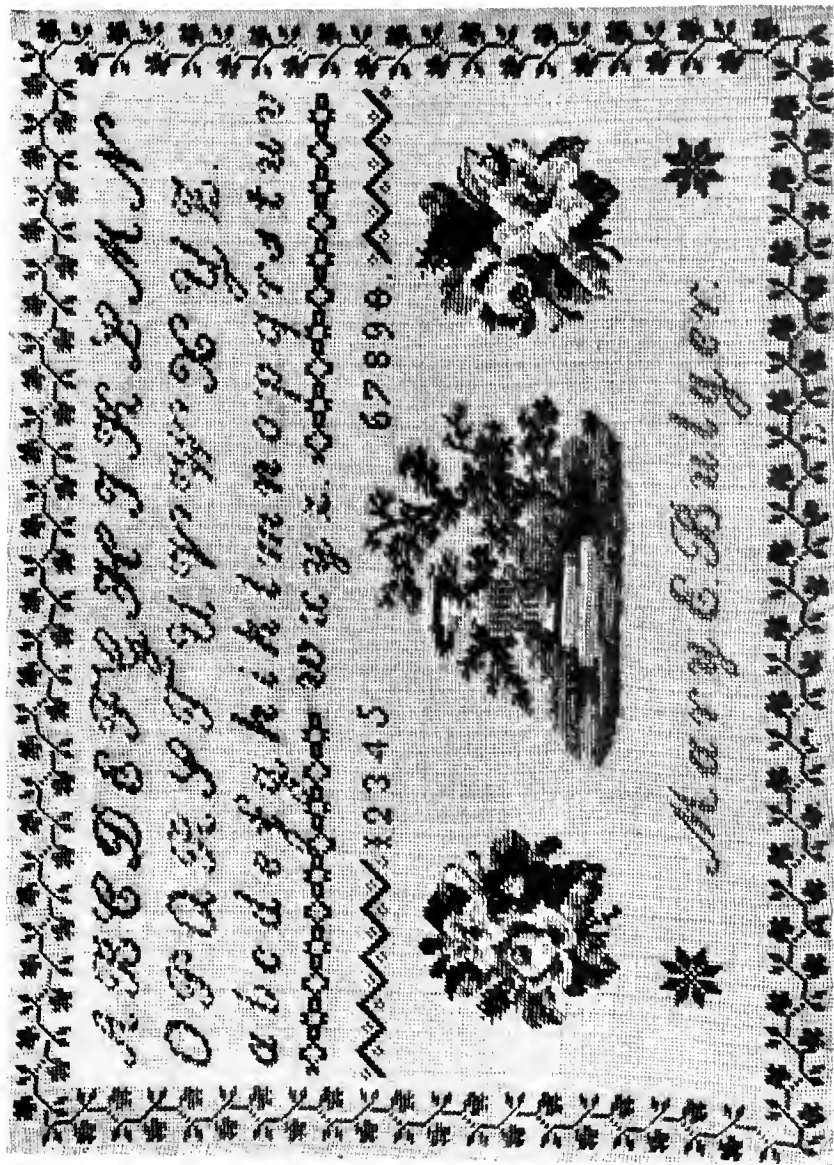 A B C D E F G H I K L M N
O P Q R S T U V W X Y Z.
a b c d e f g h i k l m n o p q r s t u v
w x y z.
1 2 3 4 5 6 7 8 9 0.
Mary E. Bulyer.